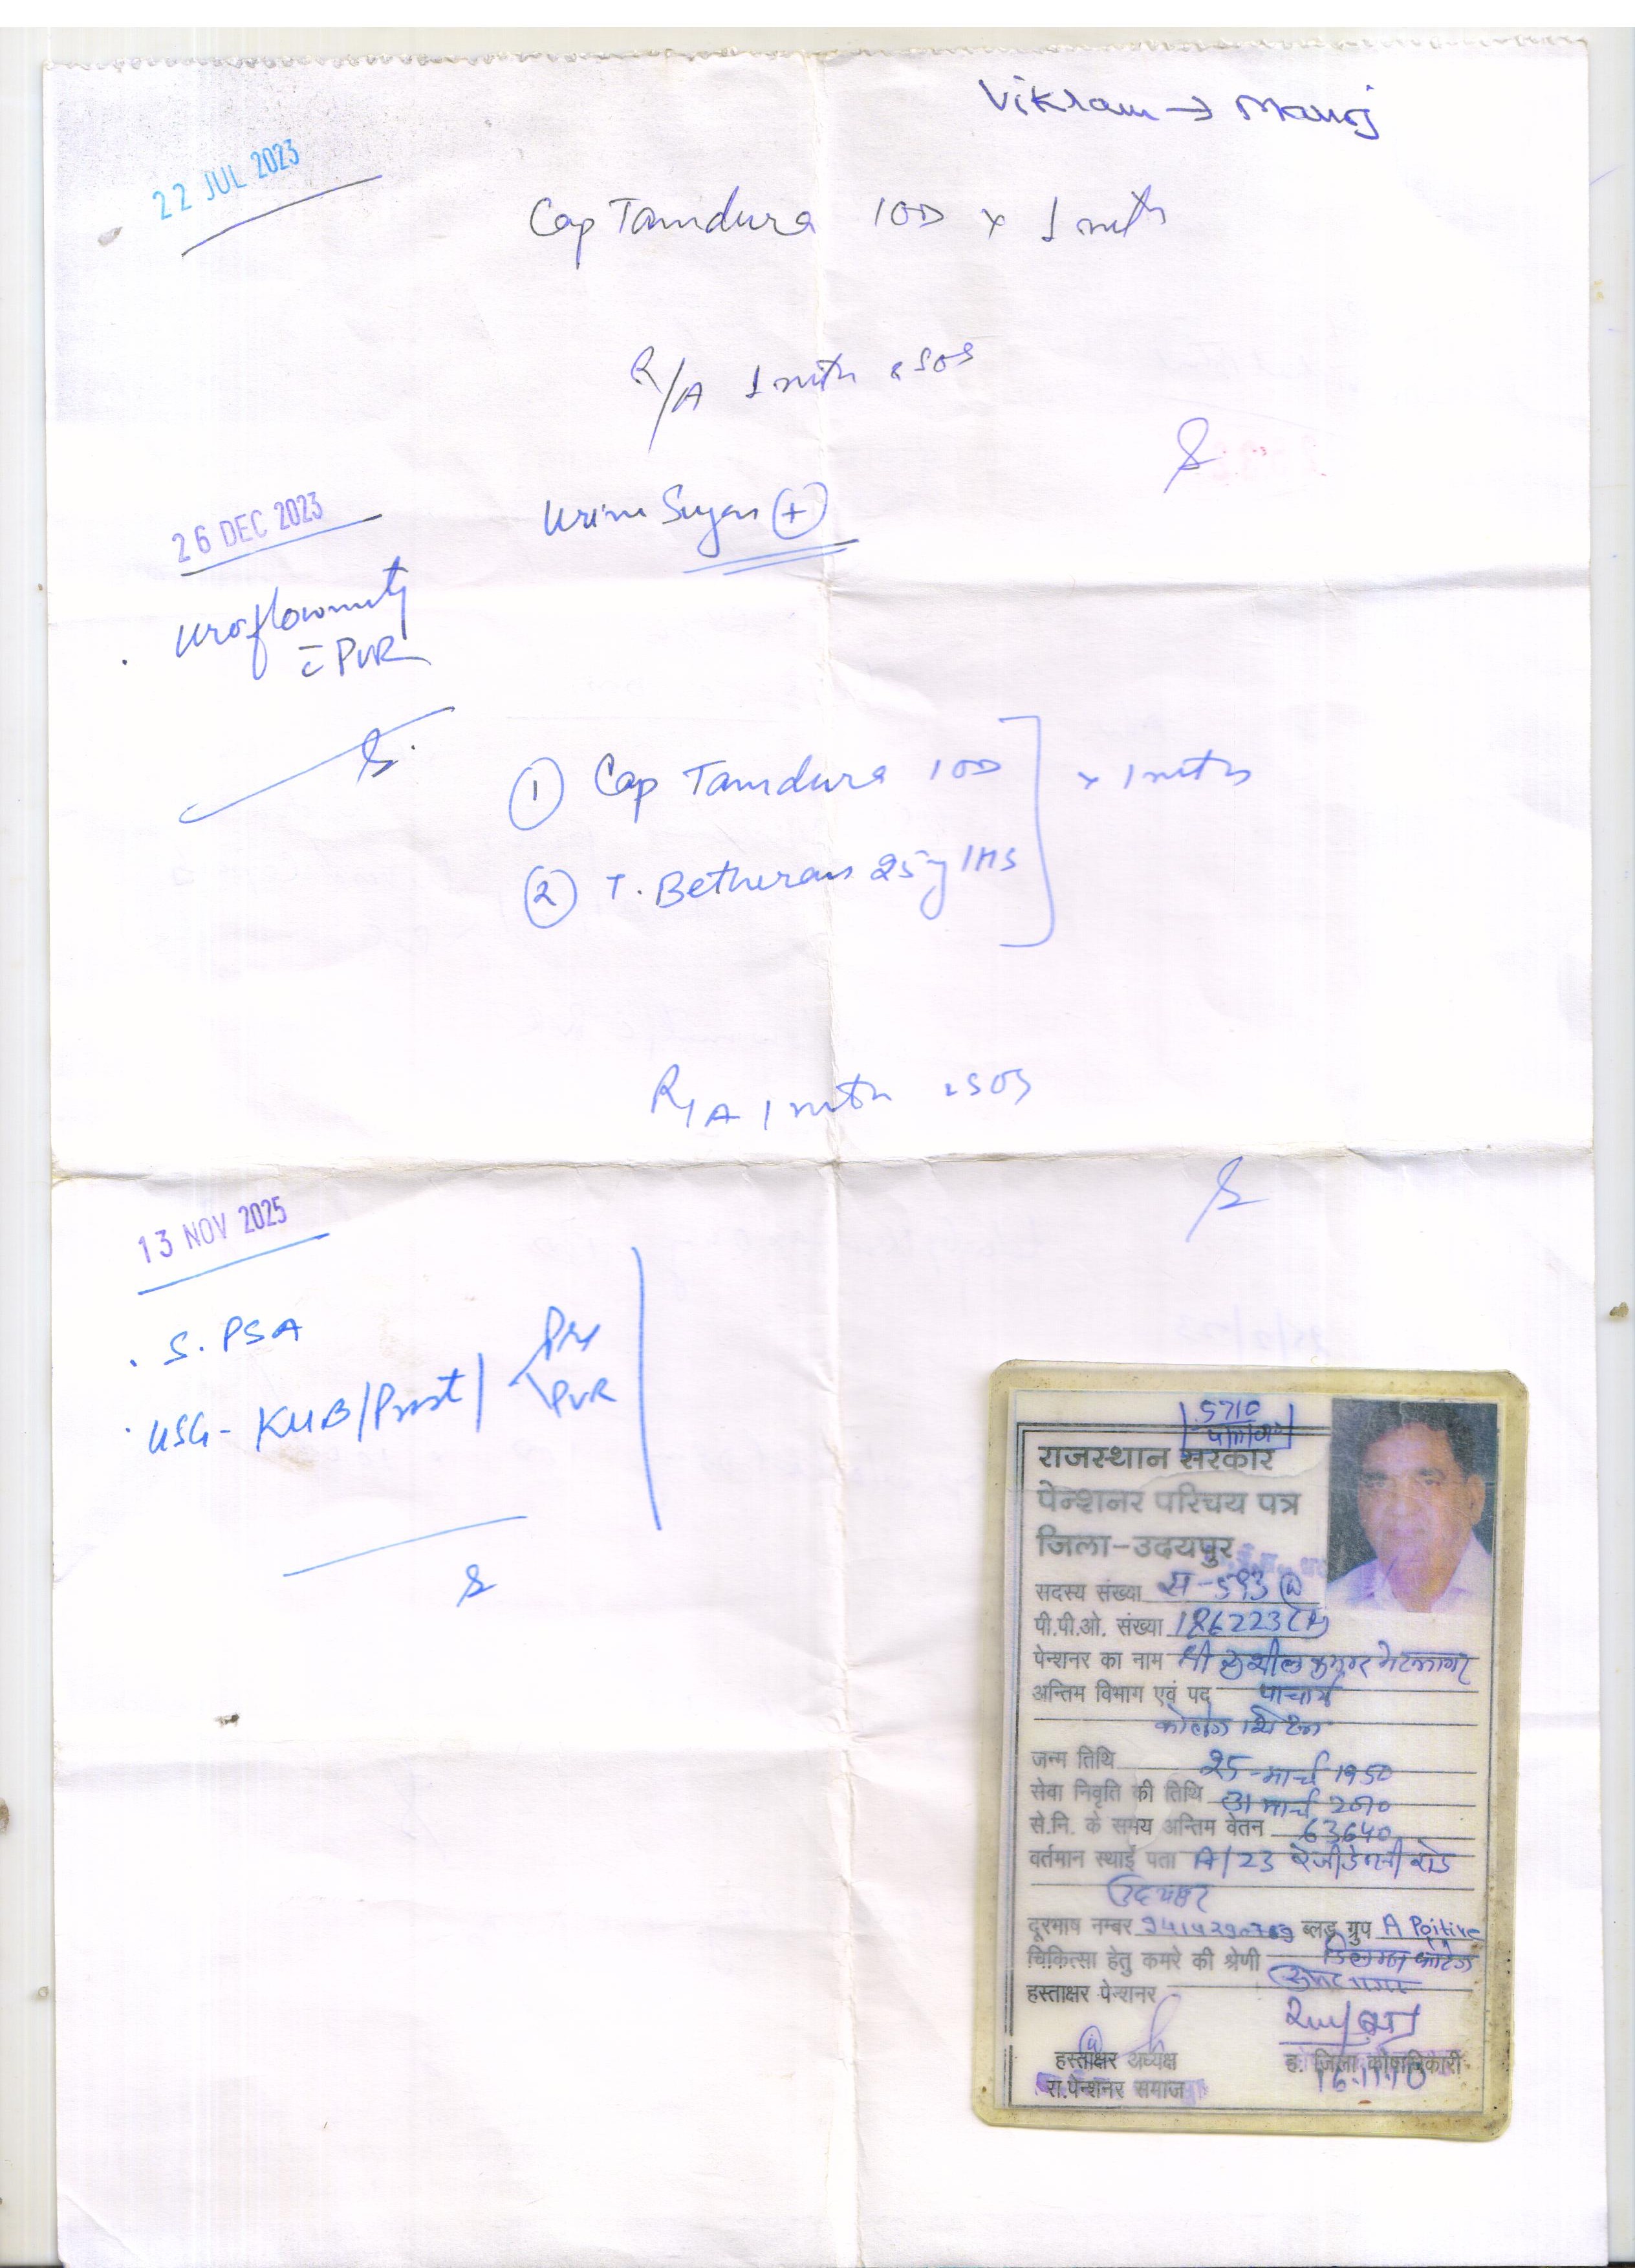 Vikram → Manoj
22 JUL 2023
Cap Tamdura 1OD x 1 mth
R/A 1 mth & SOS
26 DEC 2023
Urine Sugar (+)
Uroflowmetry
c PVR
① Cap Tamdura 1OD
x 1 mth
② T. Betheran 25mg 1HS
R/A 1 mth & SOS
13 NOV 2025
. S. PSA
. USG - KUB/Prost/ Pre
PVR
5710
राजस्थान सरकार
पेन्शनर परिचय पत्र
जिला-उदयपुर
सदस्य संख्या स-593
पी.पी.ओ. संख्या 186223 (R)
पेन्शनर का नाम श्री सुशील कुमार भटनागर
अन्तिम विभाग एवं पद प्राचार्य
कॉलेज शिक्षा
जन्म तिथि 25-मार्च 1950
सेवा निवृति की तिथि 31 मार्च 2010
से.नि. के समय अन्तिम वेतन 63640
वर्तमान स्थाई पता A/23 रेजीडेन्सी रोड
उदयपुर
दूरभाष नम्बर 9414290769 ब्लड ग्रुप A Poitive
चिकित्सा हेतु कमरे की श्रेणी डिलक्स कॉटेज
हस्ताक्षर पेन्शनर
हस्ताक्षर अध्यक्ष
ह. जिला कोषाधिकारी
रा.पेन्शनर समाज
16.11.10